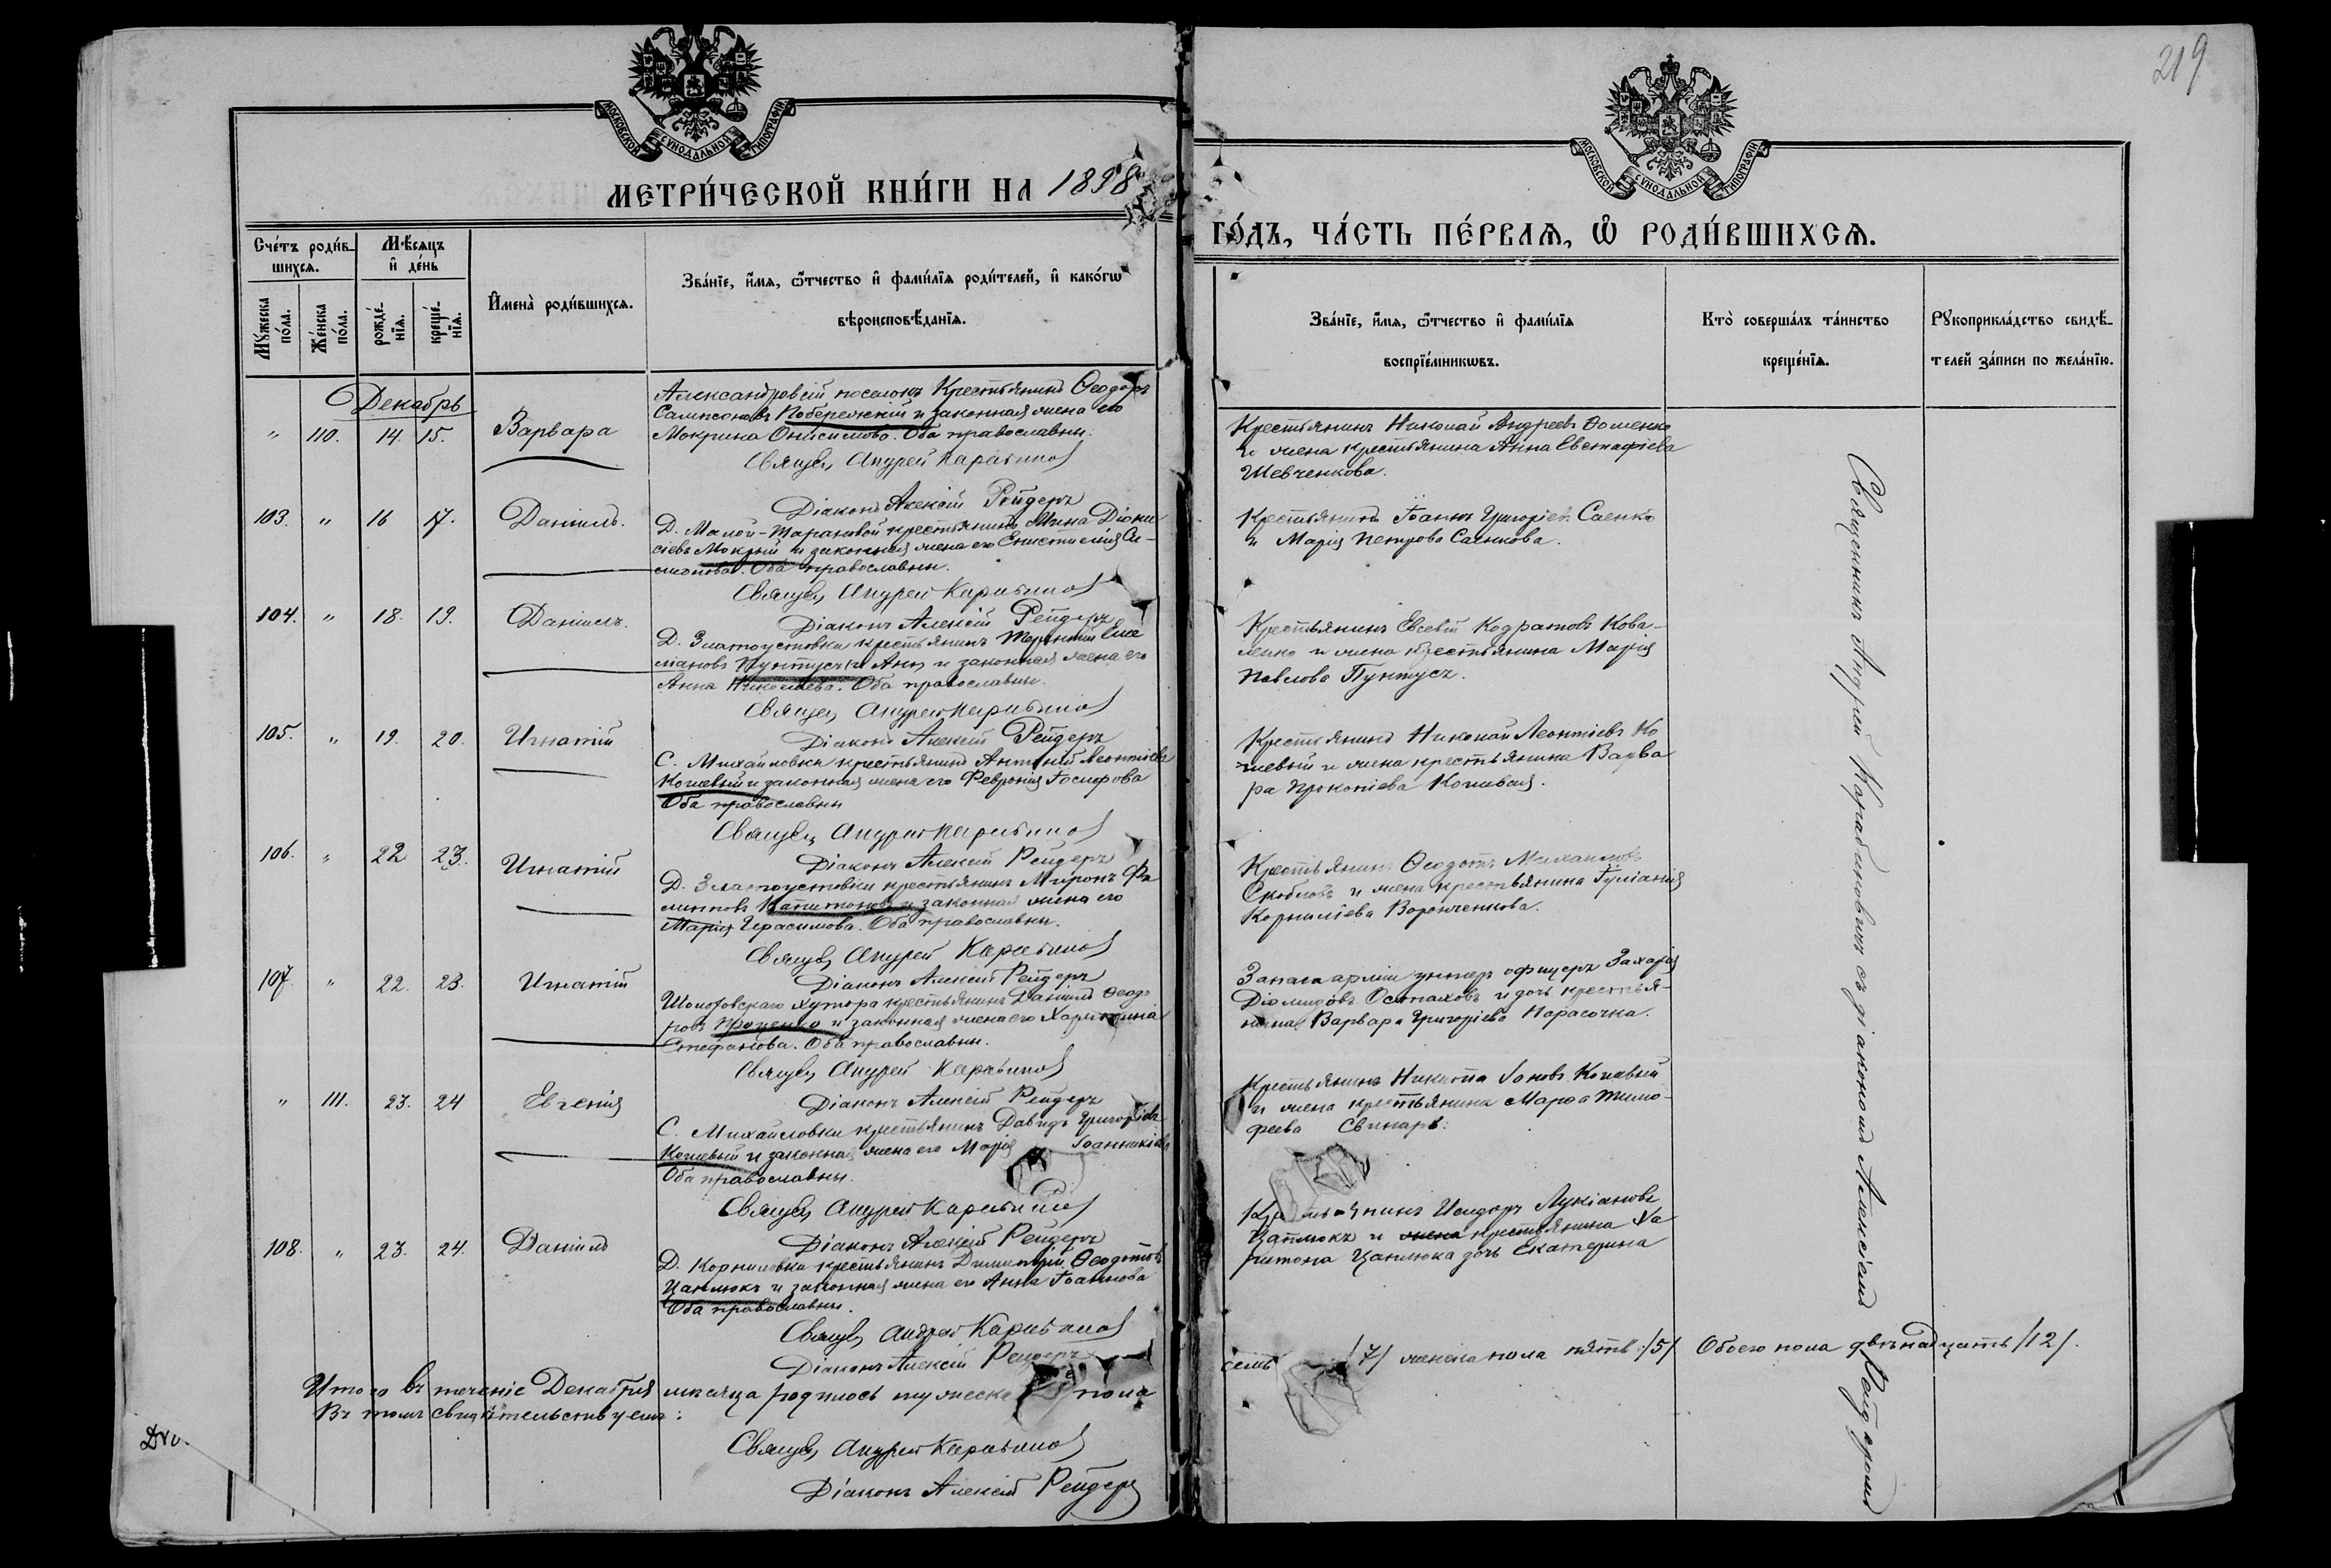 219
МОСКОВСКОЙ СѴНОДАЛЬНОЙ ТИПОГРАФІИ
МОСКОВСКОЙ СѴНОДАЛЬНОЙ ТИПОГРАФІИ
МЕТРИ́ЧЕСКОЙ КНИ́ГИ НА 1898
ГО́ДЪ, ЧА́СТЬ ПЕ́РВАѦ, Ѡ҆ РОДИ́ВШИХСѦ.
Сче́тъ роди́в-
шихсѧ.
Мѣ́сѧцъ
и҆ де́нь
Мꙋ́жеска
по́ла.
Же́нска
по́ла.
рожде́-
нїѧ.
креще́-
нїѧ.
И҆мена̀ роди́вшихсѧ.
Зва́нїе, и҆́мѧ, ѻ҆́тчество и҆ фами́лїѧ роди́телей, и҆ како́гѡ
вѣроисповѣ́данїѧ.
Зва́нїе, и҆́мѧ, ѻ҆́тчество и҆ фами́лїѧ
воспрїе́мникѡвъ.
Кто̀ соверша́лъ та́инство
креще́нїѧ.
Рꙋкоприкла́дство свидѣ́-
телей за́писи по жела́нїю.
Декабрь
" 110. 14. 15. Варвара
Александровскій поселокъ Крестьянинъ Ѳеодоръ
Сампсоновъ Побережскій и законная жена его
Мокрина Онисимова. Оба православны.
Священ. Андрей Карабинов
Діаконъ Алексій Рейдеръ
Крестьянинъ Николай Андреевъ Фоменко
и жена крестьянина Анна Евстафіева
Шевченкова.
103. " 16 17. Даніилъ.
Д. Малой-Тарановой крестьянинъ Мина Діони-
сіевъ Мокрый и законная жена его Епистимія Си-
меонова. Оба православны.
Священ. Андрей Карабинов
Діаконъ Алексій Рейдеръ
Крестьянинъ Іоаннъ Григоріевъ Саенко
и Марія Петрова Саенкова.
104. " 18. 19. Даніилъ.
Д. Златоустовки крестьянинъ Терентій Еме
ліановъ Пунтусъ и законная жена его
Анна Николаева. Оба православны.
Священ. Андрей Карабинов
Діаконъ Алексій Рейдеръ
Крестьянинъ Евсевій Кодратовъ Кова-
ленко и жена крестьянина Марія
Павлова Пунтусъ.
105. " 19. 20. Игнатій
С. Михайловки крестьянинъ Антоній Леонтіевъ
Кошевый и законная жена его Февронія Іосифова
Оба православны
Священ. Андрей Карабинов
Діаконъ Алексій Рейдеръ
Крестьянинъ Николай Леонтіевъ Ко
шевый и жена крестьянина Варва
ра Прокопіева Кошевая.
106. " 22 23. Игнатій
Д. Златоустовки крестьянинъ Миронъ Фи
липповъ Капитоновъ и законная жена его
Марія Герасимова. Оба православны.
Священ. Андрей Карабинов
Діаконъ Алексій Рейдеръ
Крестьянинъ Ѳеодотъ Михайловъ
Скобловъ и жена крестьянина Іуліанія
Корниліева Воронченкова.
107. " 22. 23. Игнатій
хутора крестьянинъ Даніилъ Ѳеодо
ровъ Проценко и законная жена его Харитина
Стефанова. Оба православны.
Священ. Андрей Карабинов
Діаконъ Алексій Рейдеръ
Запаса арміи унтеръ офицеръ Захарія
Діомидовъ Остаховъ и дочь крестья-
нина Варвара Григоріева Парасочка.
" 111. 23. 24 Евгенія
С. Михайловки крестьянинъ Давидъ Григоріевъ
Кошевый и законная жена его Марія Іоанникіева
Оба православны.
Священ. Андрей Карабинов
Діаконъ Алексій Рейдеръ
Крестьянинъ Никита Іоновъ Кошевый
и жена крестьянина Марѳа Тимо-
феева Свинарь.
108. " 23. 24. Даніилъ
Д. Корниловки крестьянинъ Димитрій Ѳеодотовъ
Цаплюкъ и законная жена его Анна Іоаннова
Оба православны.
Священ. Андрей Карабинов
Діаконъ Алексій Рейдеръ
Крестьянинъ Исидоръ Лукіановъ
Цаплюкъ и жена крестьянина Ха
ритона Цаплюка дочь Екатерина
Священникъ Андрей Карабиновичъ съ діакономъ Алексіемъ Рейдеромъ
Итого въ теченіе Декабря мѣсяца родилось мужеска пола
семь /7/ женска пола пять /5/ Обоего пола двѣнадцать /12/.
Въ томъ свидѣтельствуемъ:
Священ. Андрей Карабинов
Діаконъ Алексій Рейдеръ